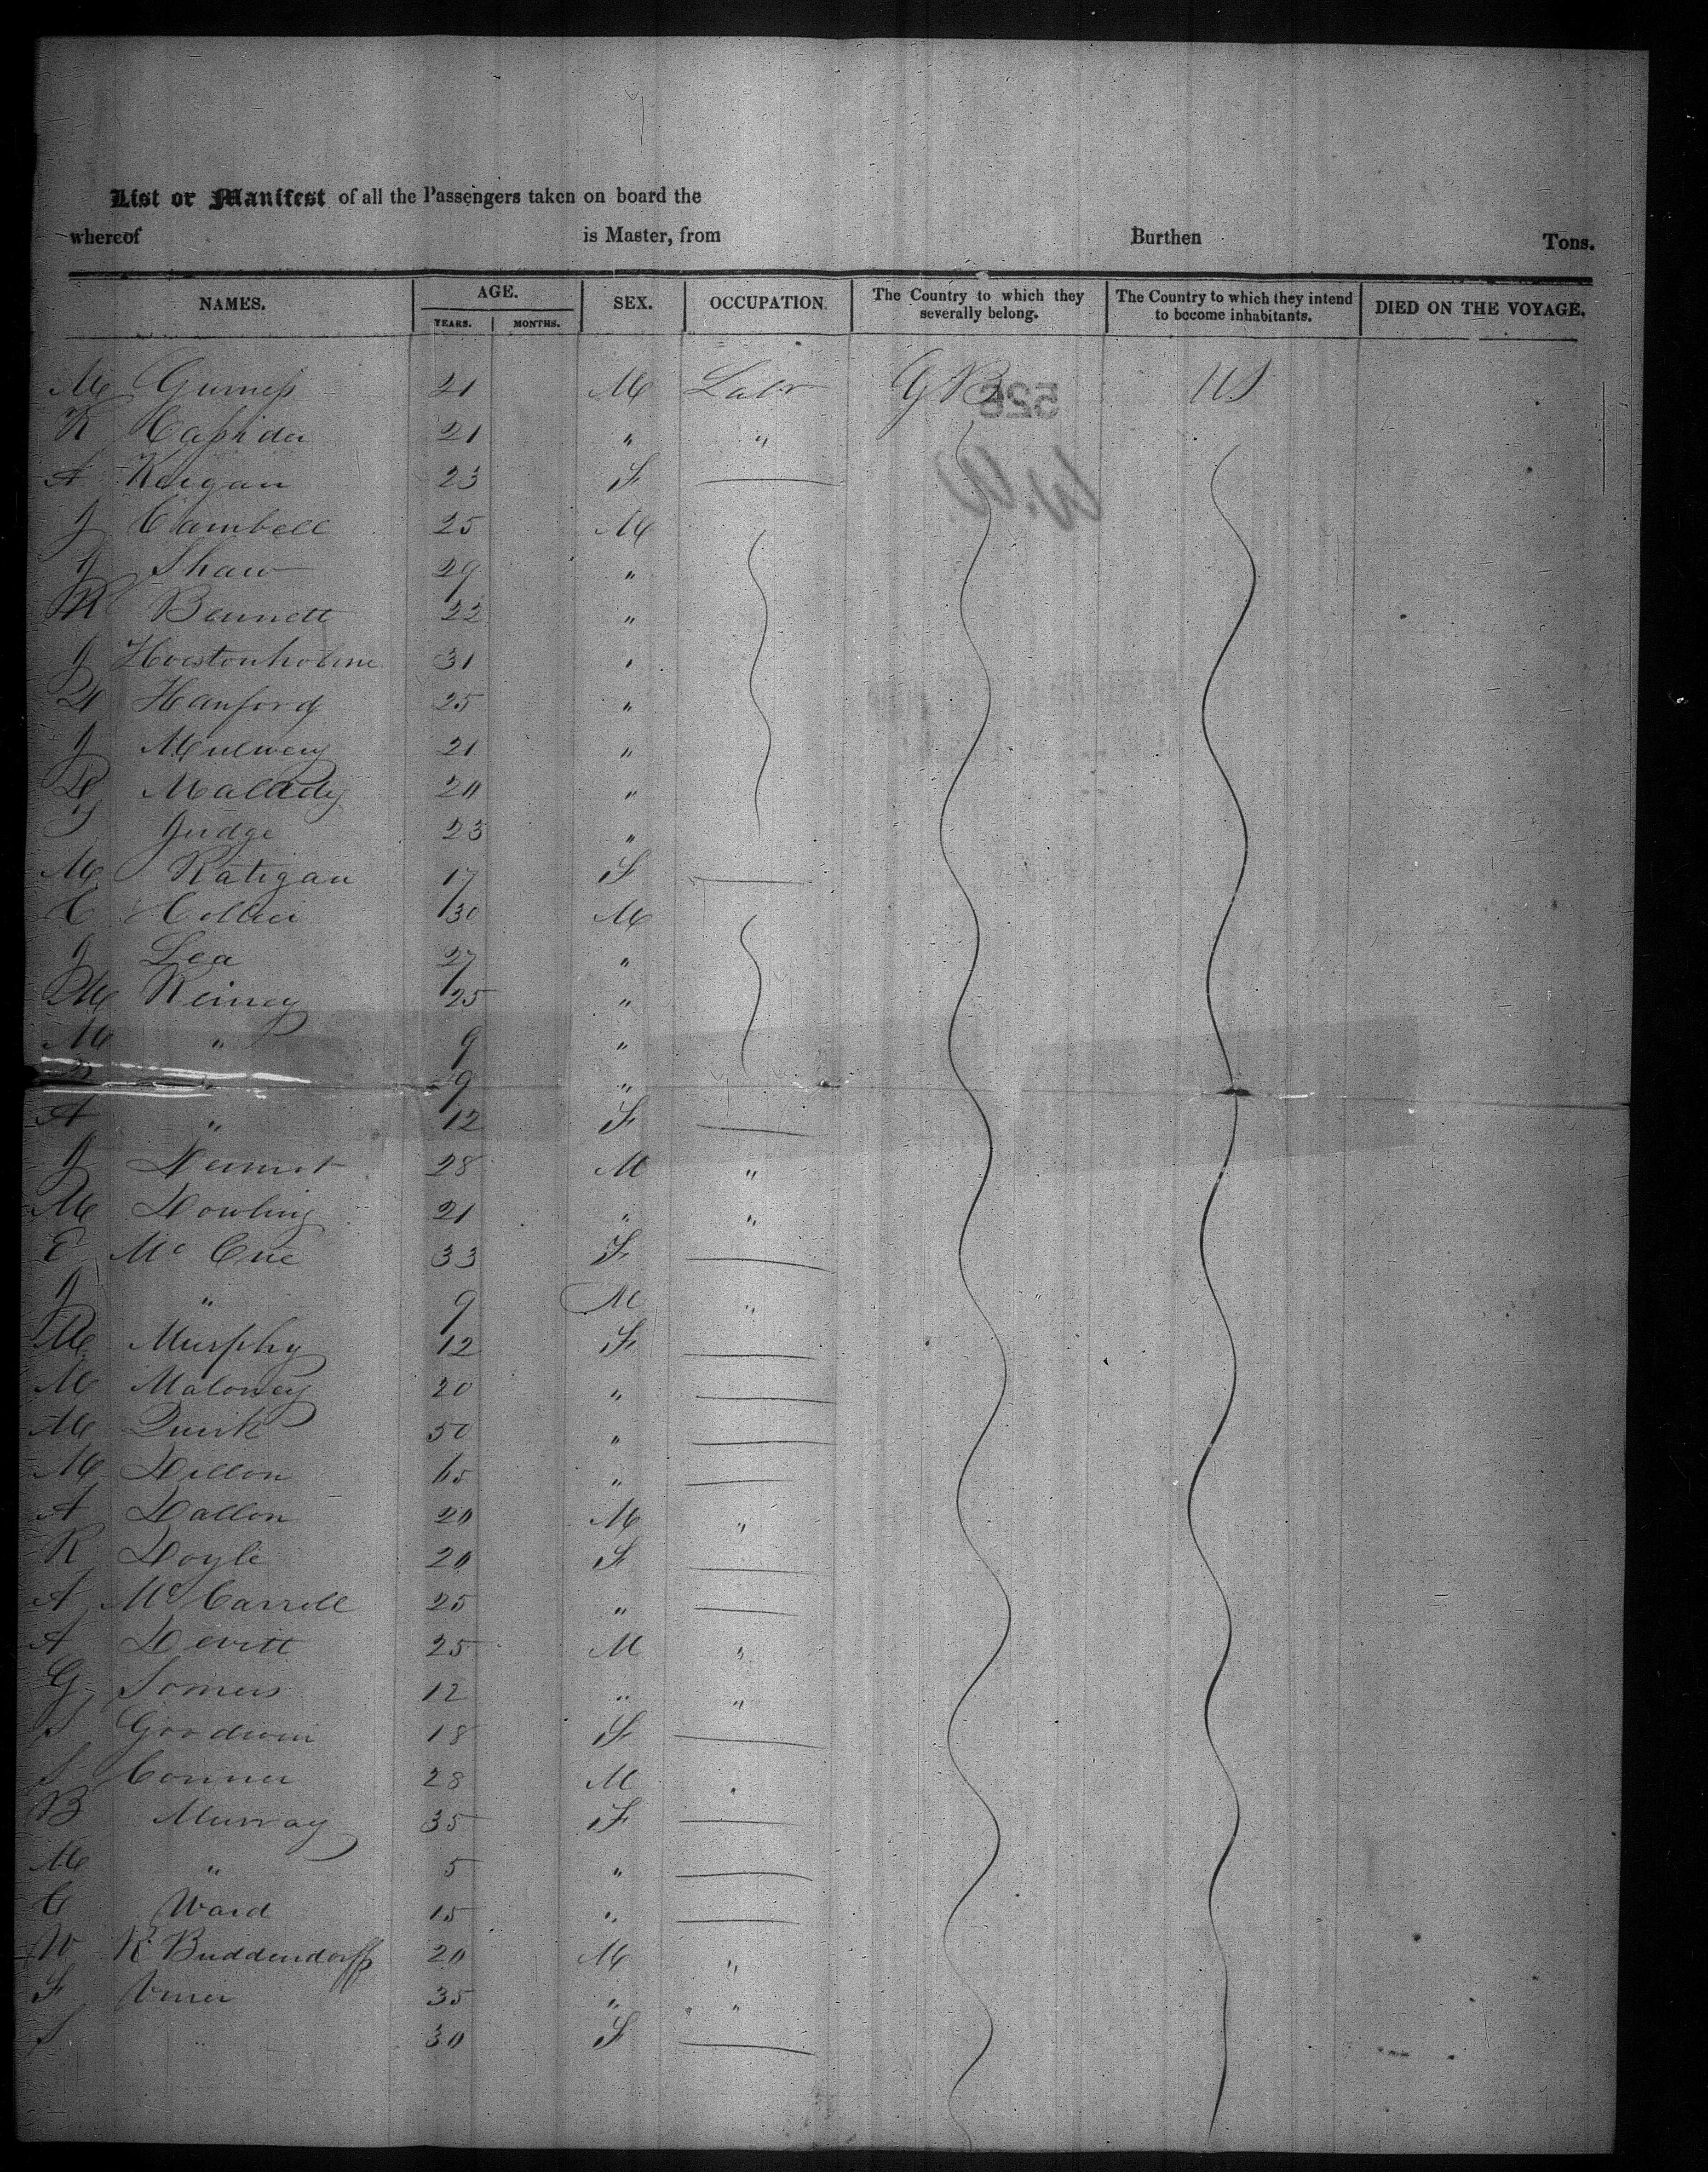 List or Manifest of all the Passengers taken on board the
whereof is Master, from Burthen Tons.
NAMES. AGE. SEX. OCCUPATION. The Country to which they severally belong. The Country to which they intend to become inhabitants. DIED ON THE VOYAGE.
YEARS. MONTHS.
M 21 M Labr GB 526 US
K 21 " "
A Keigan 23 F
J Cambell 25 M
J Shaw 29 "
M Bennett 22 "
J 31 "
Hanford 25 "
J Mulvey 21 "
Malady 20 "
Judge 23 "
M Ratigan 17 F
C 30 M
J Lea 27 "
M Reiney 25 "
M " 9 "
" 9 "
A " 12 F
J 28 M "
M Dowling 21 " "
E Mc Cue 33 F
J " 9 M "
M Murphy 12 F
M Maloney 20 "
M Quirk 50 "
M Dillon "
A Dallon 20 M "
K Doyle 20 F
A Mc Carroll 25 "
A Devitt 25 M "
G Somers 12 " "
S 18 F
S Conner 28 M "
B Murray 35 F
M " 5 "
C Ward 15 "
W R Buddendorff 20 M "
F 35 " "
S 30 F